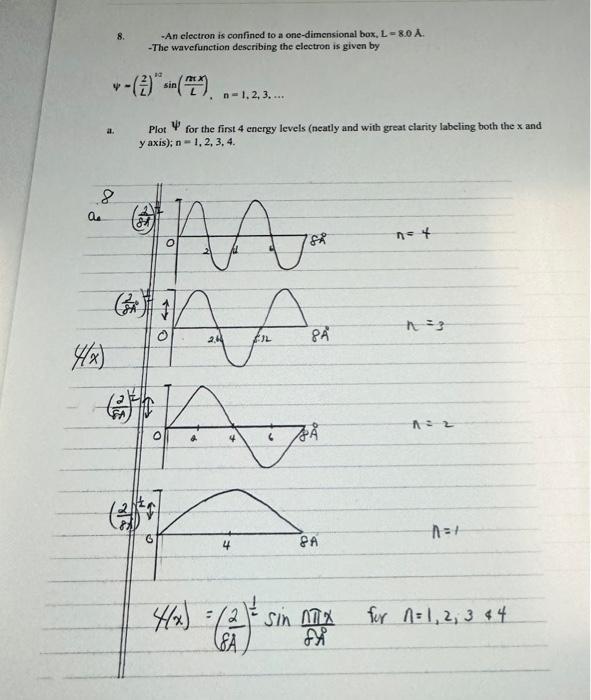 8. -An electron is confined to a one-dimensional box, L = 8.0 Å.
-The wavefunction describing the electron is given by
Ψ = (2/L)^1/2 sin(nπx/L), n = 1, 2, 3, ...
a. Plot Ψ for the first 4 energy levels (neatly and with great clarity labeling both the x and
y axis); n = 1, 2, 3, 4.
8
a. (2/8Å)^1/2
0 2 4 6 8Å n = 4
(2/8Å)^1/2
0 8Å n = 3
Ψ(x)
(2/8Å)^1/2
0 2 4 6 8Å n = 2
(2/8Å)^1/2
0 4 8Å n = 1
Ψ(x) = (2/8Å)^1/2 sin nπx/8Å for n = 1, 2, 3 & 4